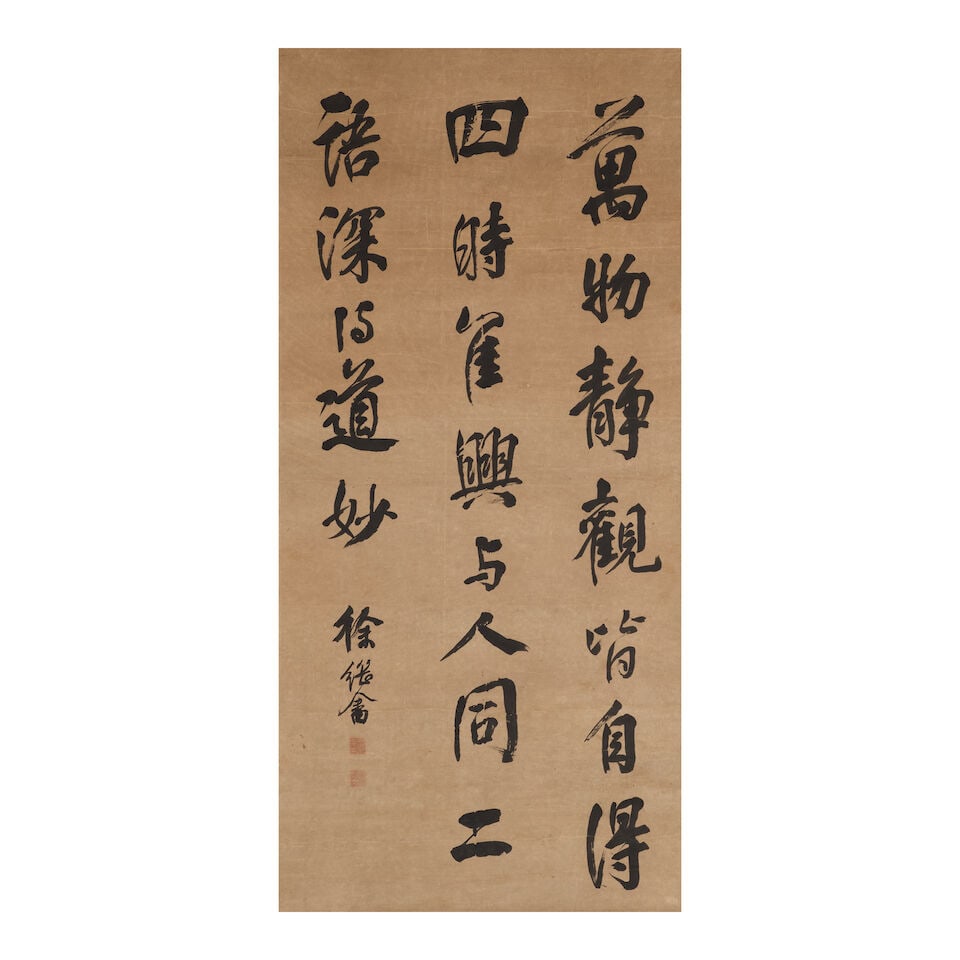 萬物静觀皆自得
四時隹興与人同二
語深得道妙
徐繼畬